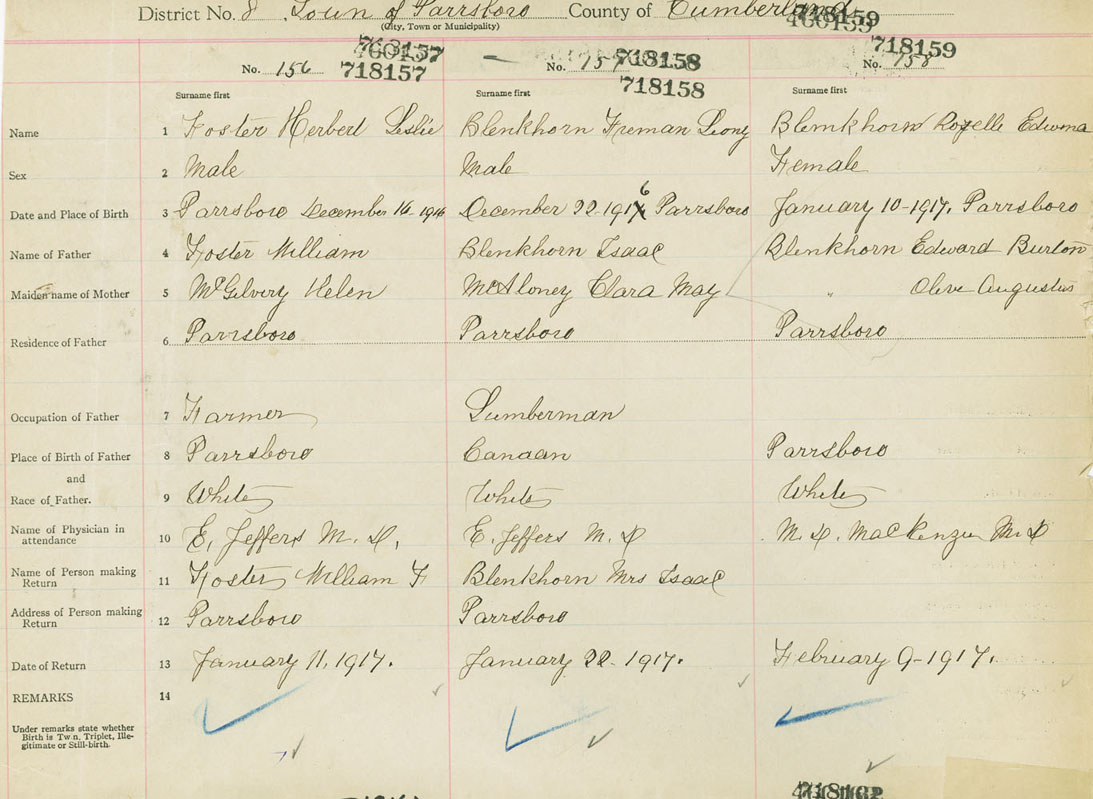 District No. 8 Town of Parrsboro County of Cumberland
(City, Town or Municipality)
718159
No. 156 718157 No. 157 718158 No. 158 718159
718157 718158
Surname first Surname first Surname first
Name 1 Foster Herbert Leslie Blenkhorn Freman Leony Blenkhorn Rozelle Edwena
Sex 2 Male Male Female
Date and Place of Birth 3 Parrsboro December 16-1916 December 22-1916 Parrsboro January 10-1917. Parrsboro
Name of Father 4 Foster William Blenkhorn Isaac Blenkhorn Edward Burton
Maiden name of Mother 5 McGilvery Helen McAloney Clara May " Olive Augustus
Residence of Father 6 Parrsboro Parrsboro Parrsboro
Occupation of Father 7 Farmer Lumberman
Place of Birth of Father 8 Parrsboro Canaan Parrsboro
and
Race of Father. 9 White White White
Name of Physician in attendance 10 E. Jeffers M. D. E. Jeffers M. D M. D. MacKenzie M. D
Name of Person making Return 11 Foster William F Blenkhorn Mrs Isaac
Address of Person making Return 12 Parrsboro Parrsboro
Date of Return 13 January 11, 1917. January 22-1917. February 9-1917.
REMARKS 14
Under remarks state whether
Birth is Twin, Triplet, Ille-
gitimate or Still-birth.